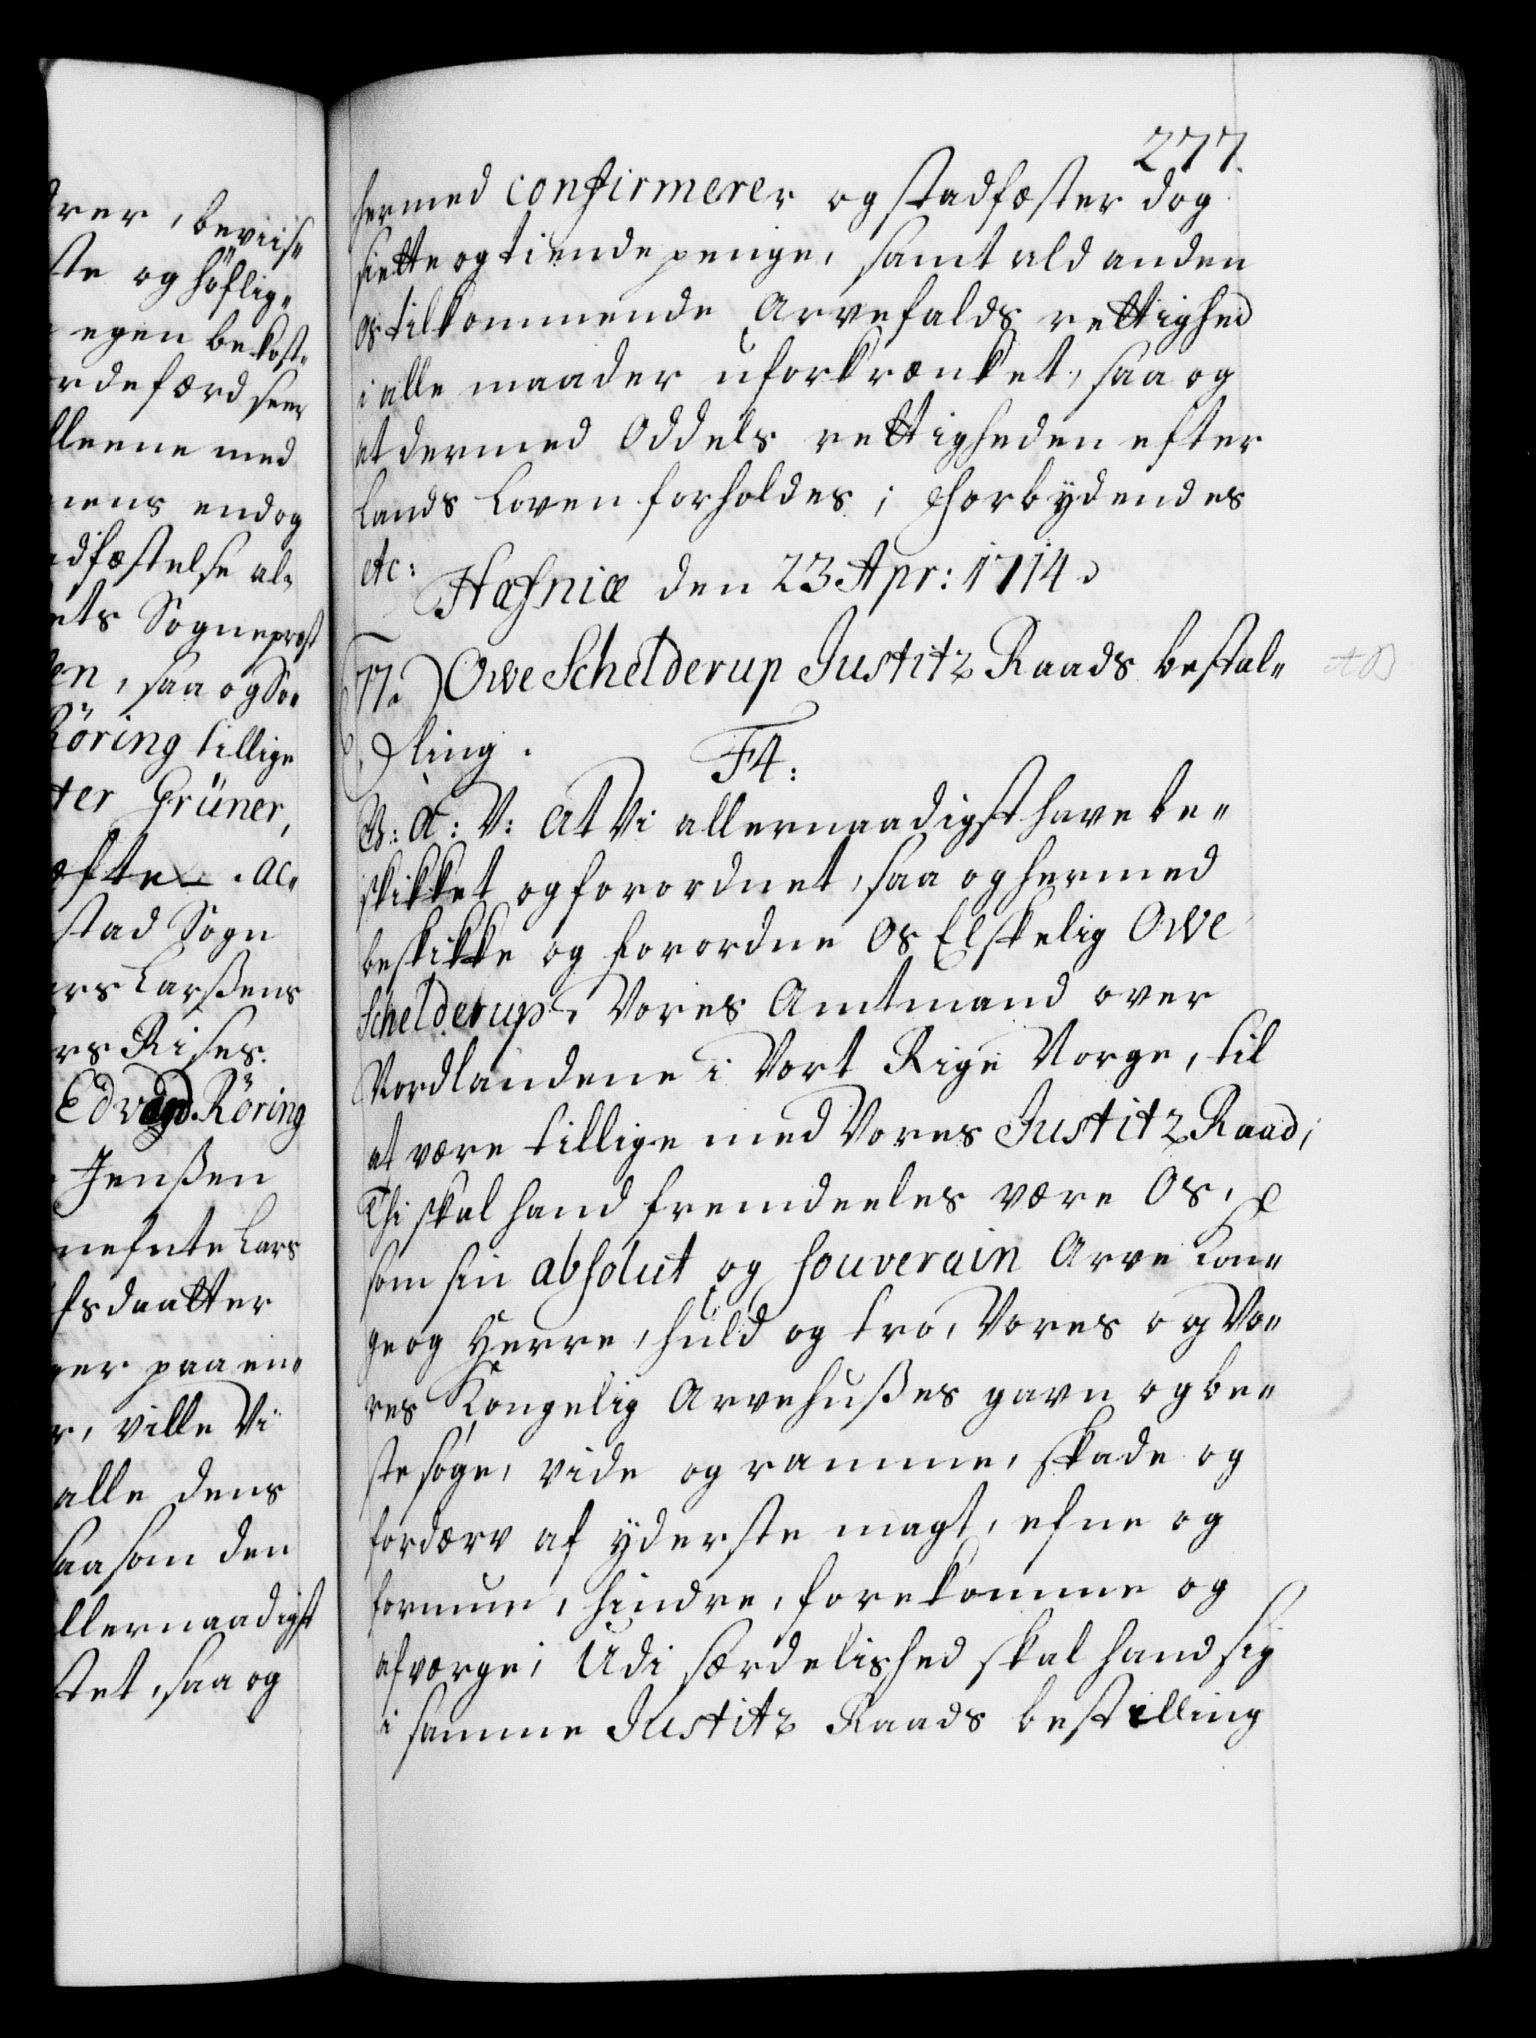 drer, beviis„
ste og höflig„
egen bekost„
rdeførd seer
lleene med
nens endog
adfæstelse al„
ets Sogneprest
en, saa og So„
Röring tillige
ter Grüner,
efter. ac„
stad Sogn
ers Larßens
rs Rises.
Edvard Röring
Jenßen
nefnte Lars
fsdaatter
ger paa en„
r, ville Vi
alle dens
saasom den
llernaadigst
stet, saa og
277.
hermed confirmerer og stadfæster dog
siette og tiende penge, samt ald anden
os tilkommende Arvefalds rettighed
i alle maader uforkrænket, saa og
at dermed Oddels rettigheden efter
Lands Loven forholdes; Forbydendes
etc: Hafniæ den 23 Apr: 1714.
77. Owe Schelderup Justitz Raads bestal„
ling. F4:
G: A: V: At Vi allernaadigst have be„
skikket og forordnet, saa og hermed
beskikke og forordne Os Elskelig Owe
Schelderup, Vores Amtmand over
Nordlandene i Vort Rige Norge, til
at være tillige med Vores Justitz Raad;
Thi skal hand fremdeeles være Os,
som sin absolut og souverain Arve Kon„
ge og Herre, huld og tro, Vores og Vo„
res Kongelig Arvehußes gavn og be„
ste søge, vide og ramme, skade og
fordærv af yderste magt, efne og
formue, hindre, forekomme og
afværge; Udi særdelished skal hand sig
i samme Justitz Raads bestilling